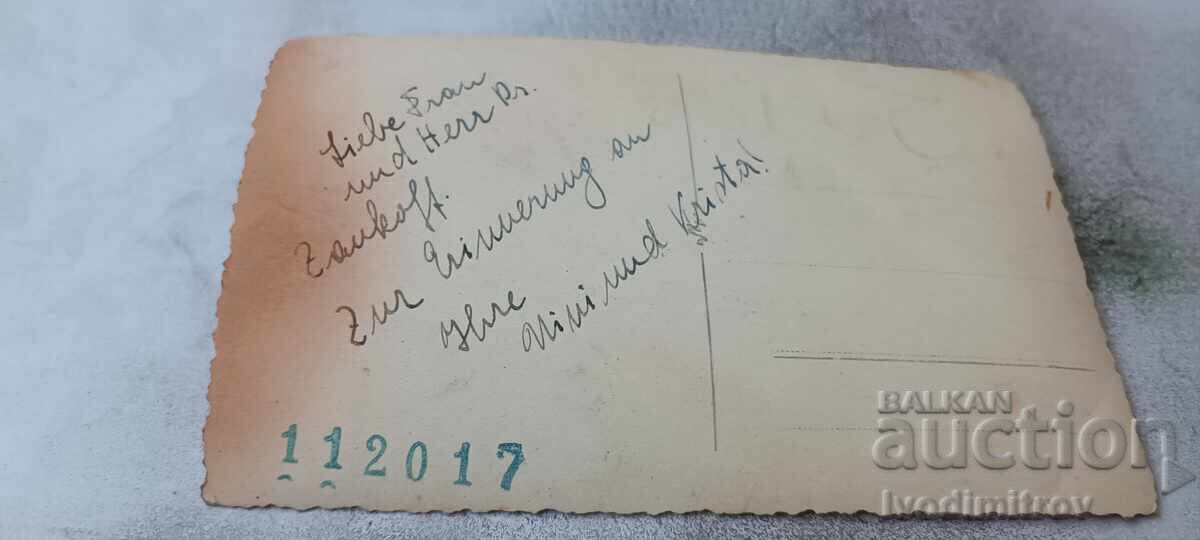 Liebe Frau
und Herr Dr.
Zankoff.
Zur Erinnerung an
Ihre
Mimi und Krista!
112017
BALKAN
auction
Ivodimitrov